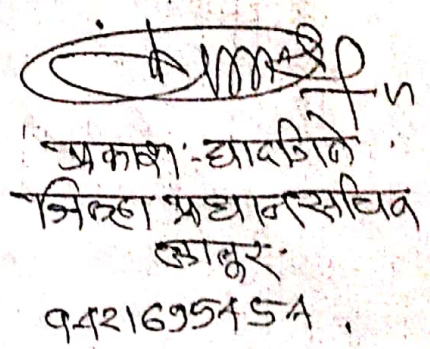 प्रकाश घादगिने
जिल्हा प्रधान सचिव
लातूर.
9421695454.